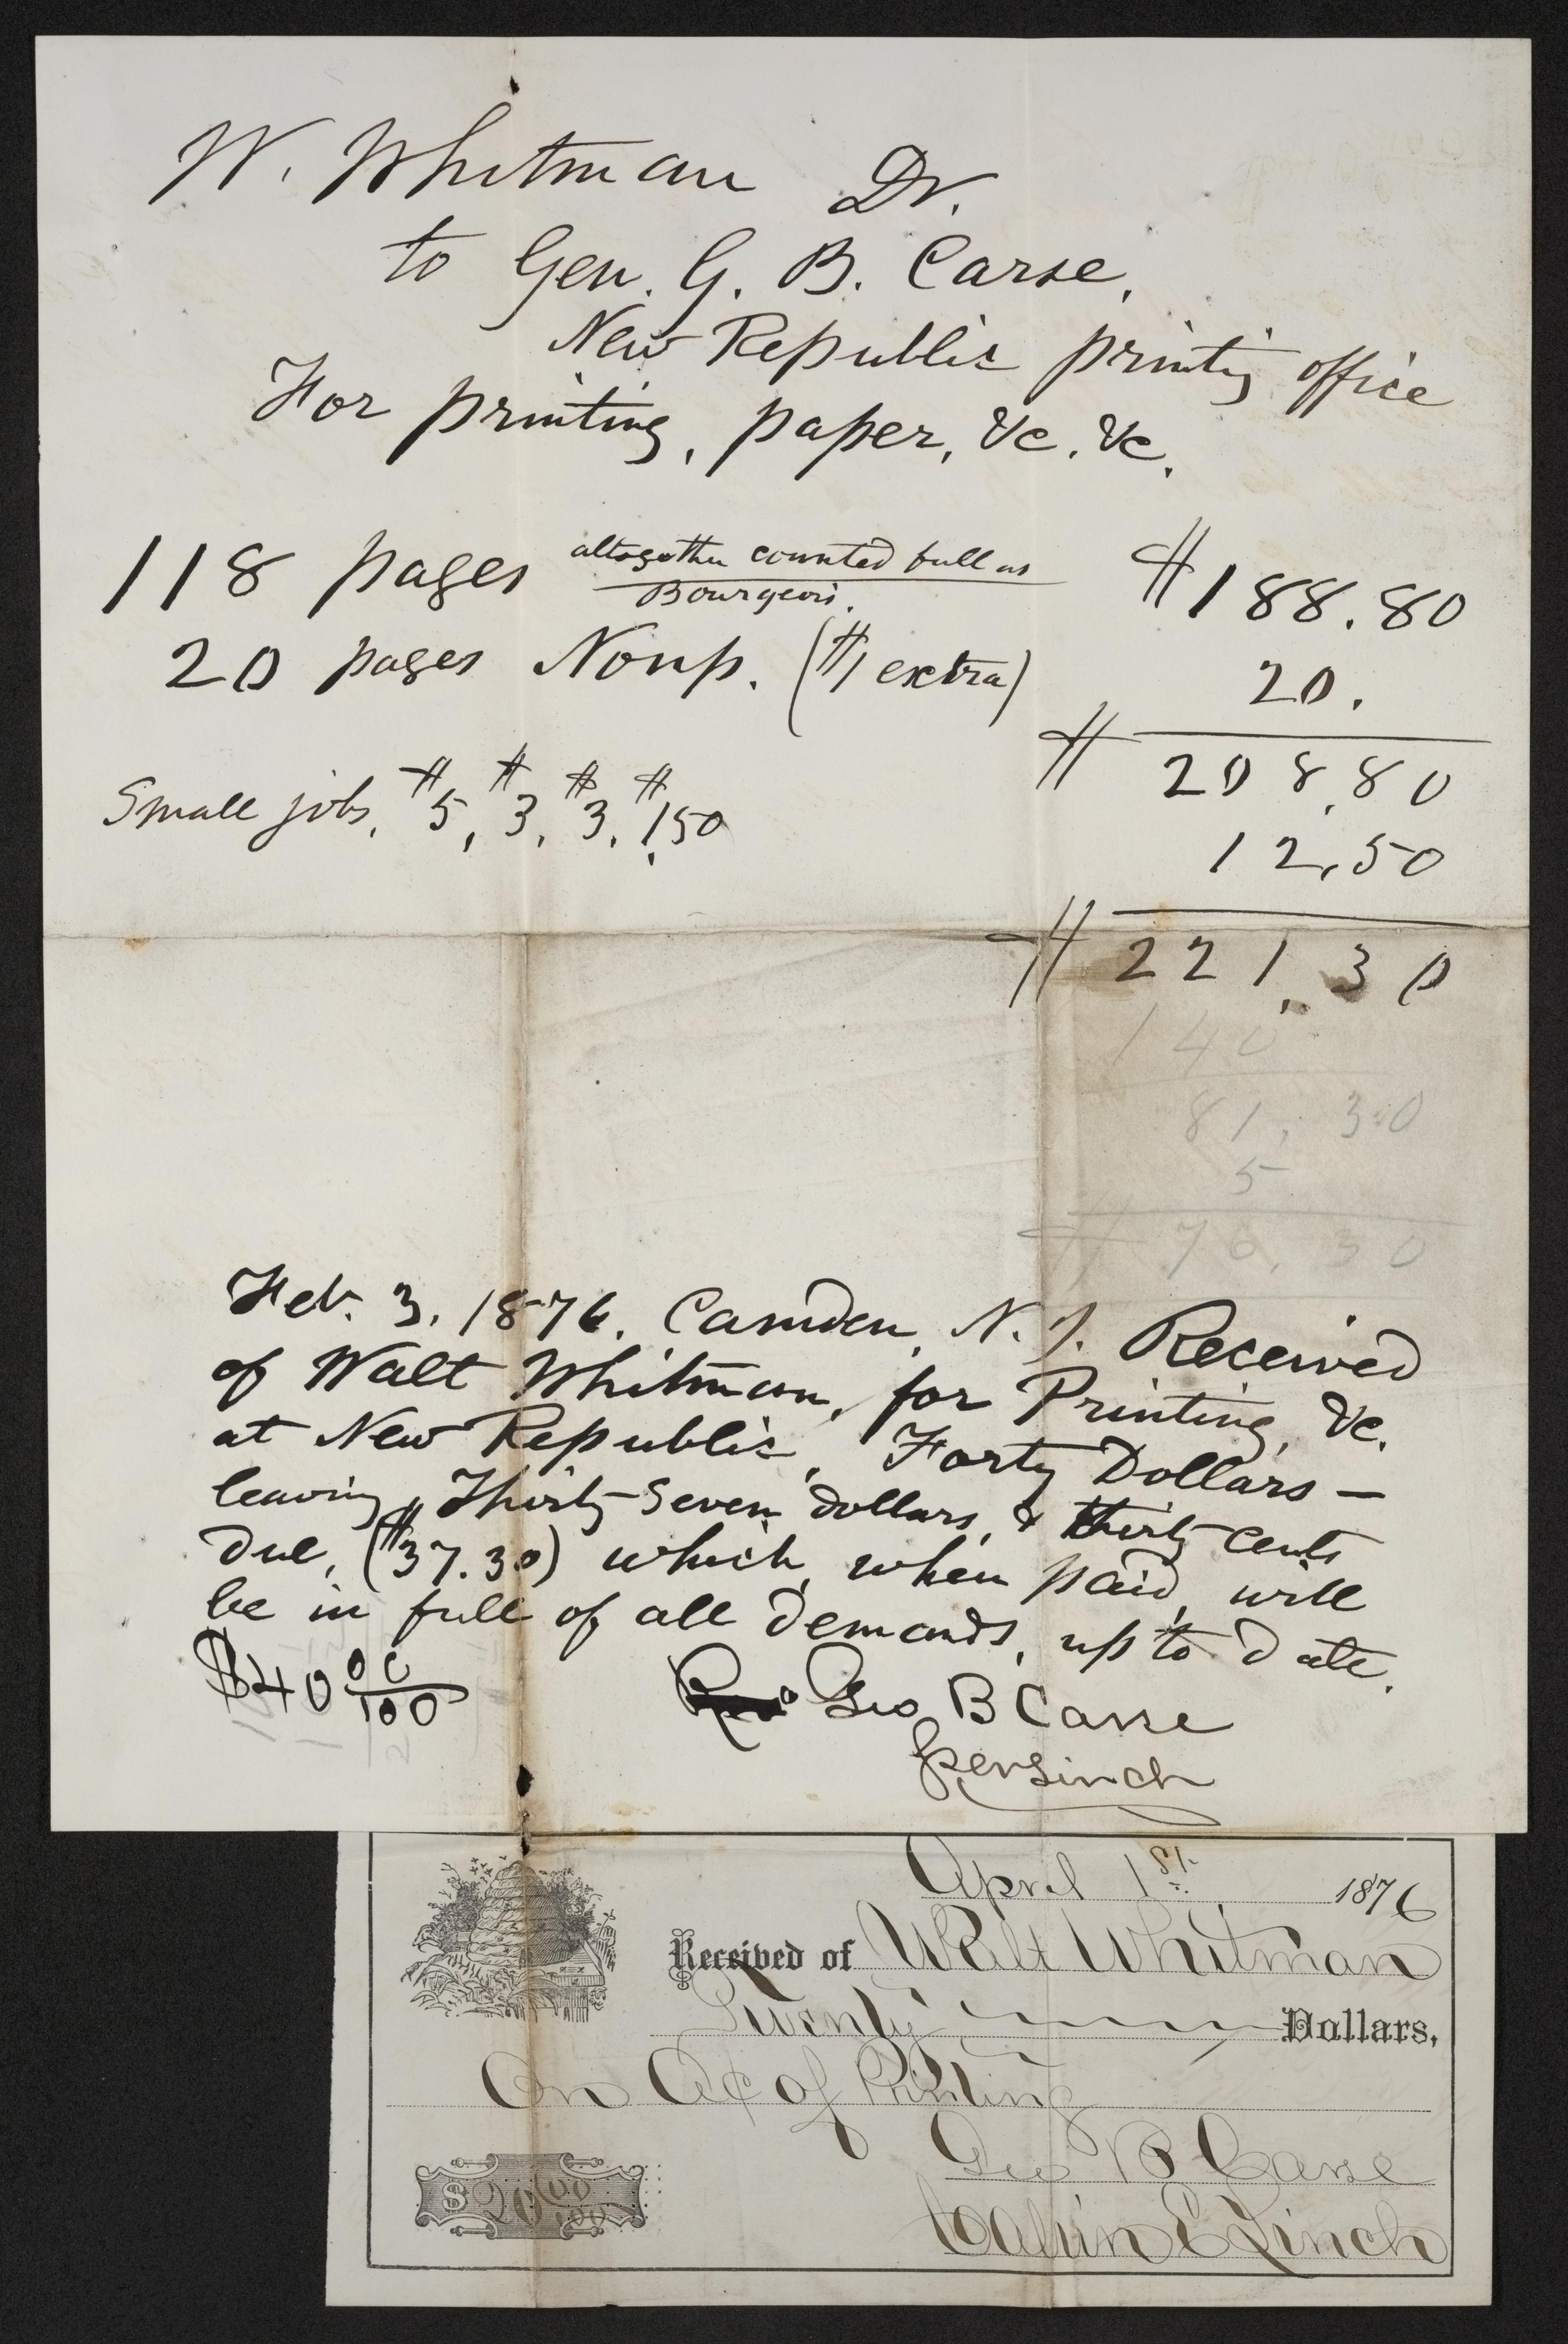 W. Whitman Dr.
to Gen. G. B. Carse,
New Republic printing office
For printing, paper, &c. &c.
118 pages altogether counted full as Bourgeois. $188.80
20 pages Nonp. ($1 extra) 20.
$ 208,80
Small jobs, $5, $3, $3, $1,50
12,50
$ 221,30
140
81,30
5
$ 76,30
Feb. 3, 1876. Camden, N. J. Received
of Walt Whitman, for Printing, &c.
at New Republic, Forty Dollars —
leaving Thirty-seven dollars, & thirty cents
due, ($37.30) which, when paid, will
be in full of all demands, up to date.
$40 00/100 Geo B Carse
per Linch
April 1st 1876
Received of Walt Whitman
Twenty Dollars,
On a/c of Printing
Geo B Carse
$ 20 00/100 Calvin E Linch